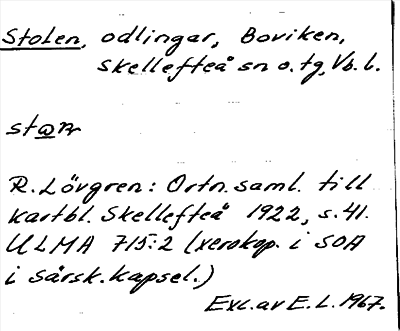 Stolen, odlingar, Boviken,
Skellefteå sn o. tg, Vb. l.
R. Lövgren: Ortn. saml. till
kartbl. Skellefteå 1922, s. 41.
ULMA 715:2 (xerokop. i SOA
i särsk. kapsel.)
Exc. av E. L. 1967.